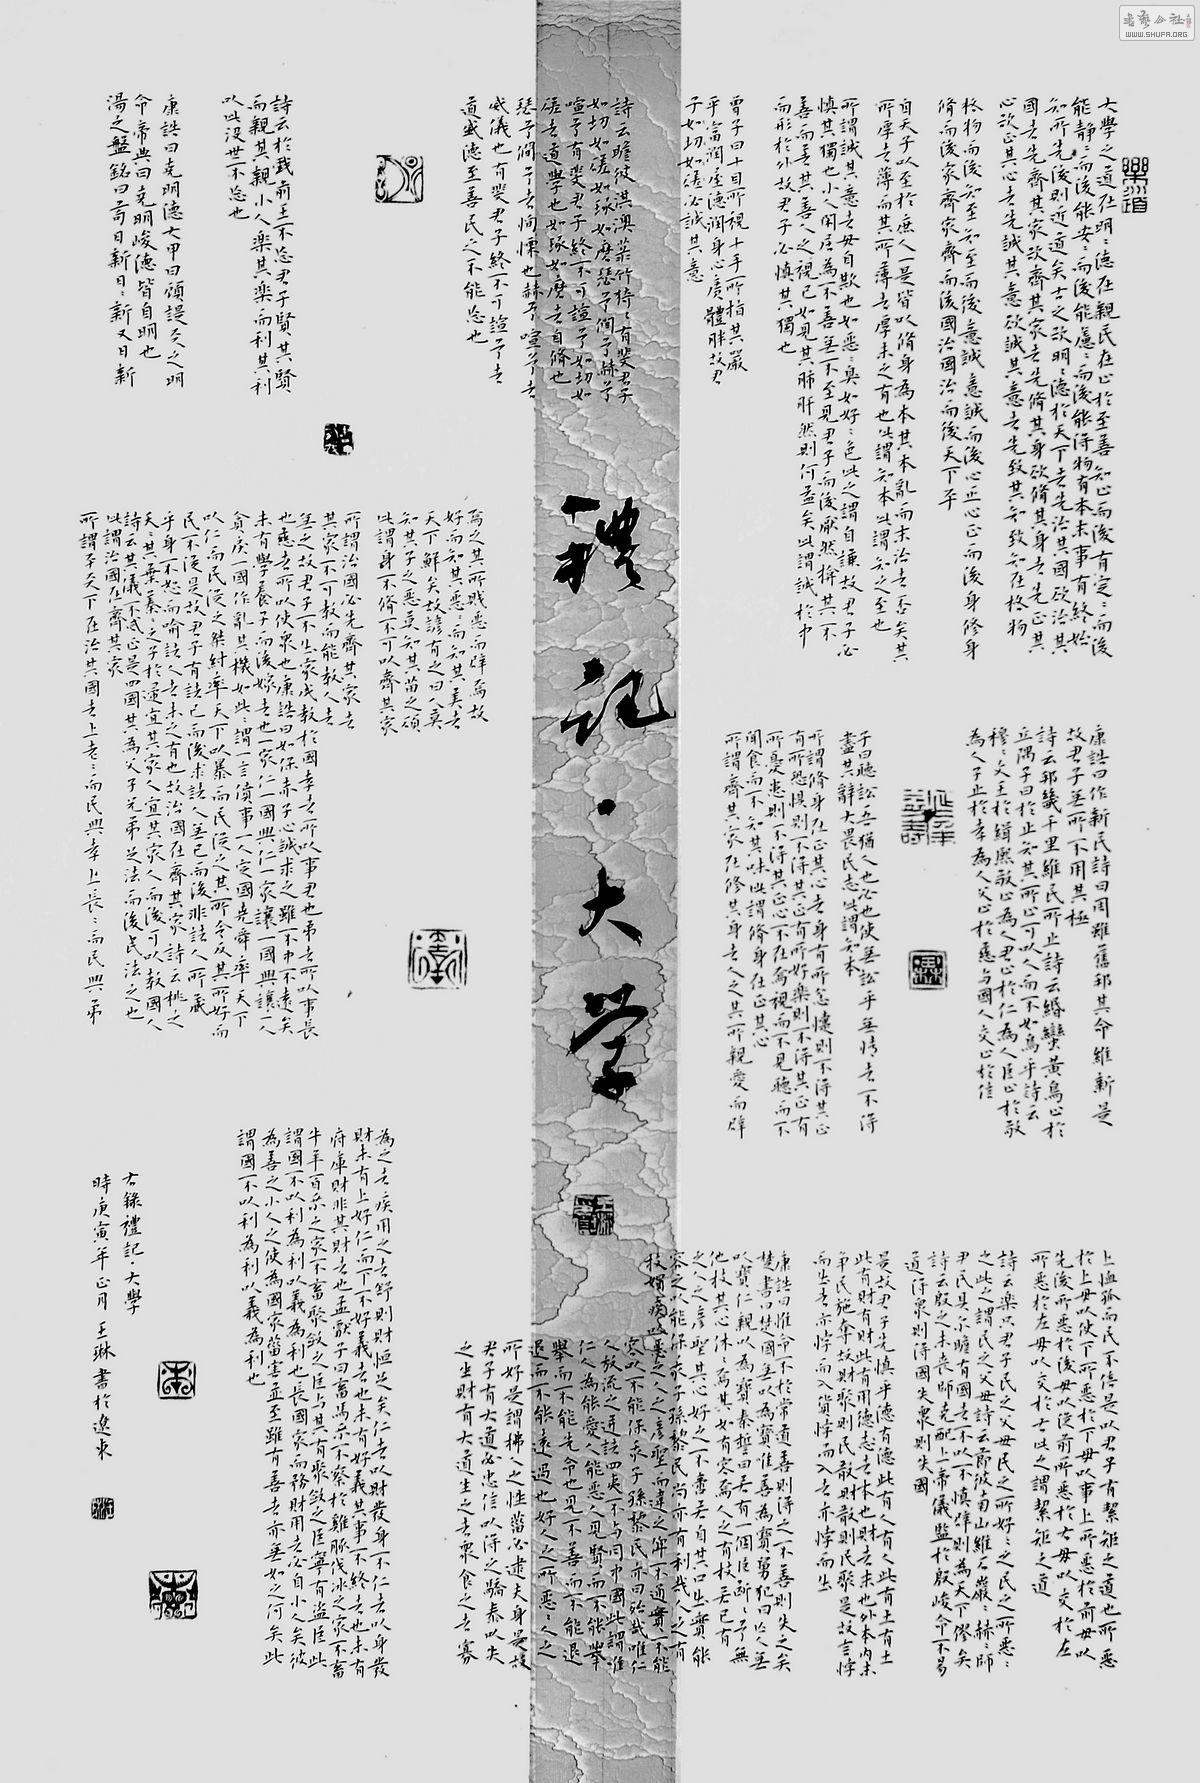 大學之道在明〻德在親民在止於至善知止而後有定〻而後
能靜〻而後能安〻而後能慮〻而後能得物有本末事有終始
知所先後則近道矣古之欲明〻德於天下者先治其國欲治其
國者先齊其家欲齊其家者先脩其身欲脩其身者先正其
心欲正其心者先誠其意欲誠其意者先致其知致知在格物
格物而後知至知至而後意誠意誠而後心正心正而後身修身
脩而後家齊家齊而後國治國治而後天下平
自天子以至於庶人一是皆以脩身為本其本亂而末治者否矣其
所厚者薄而其所薄者厚未之有也此謂知本此謂知之至也
所謂誠其意者毋自欺也如惡〻臭如好〻色此之謂自謙故君子必
慎其獨也小人閑居為不善無不至見君子而後厭然揜其不
善而著其善人之視己如見其肺肝然則何益矣此謂誠於中
而形於外故君子必慎其獨也
曾子曰十目所視十手所指其嚴
乎富潤屋德潤身心廣體胖故君
子必誠其意
詩云瞻彼淇澳菉竹猗〻有斐君子
如切如磋如琢如磨瑟兮僩兮赫兮
喧兮有斐君子終不可諠兮如切如
磋者道學也如琢如磨者自脩也
瑟兮僩兮者恂慄也赫兮喧兮者
威儀也有斐君子終不可諠兮者
道盛德至善民之不能忘也
詩云於戲前王不忘君子賢其賢
而親其親小人樂其樂而利其利
以此沒世不忘也
康誥曰克明德大甲曰顧諟天之明
命帝典曰克明峻德皆自明也
湯之盤銘曰苟日新日〻新又日新
康誥曰作新民詩曰周雖舊邦其命維新是
故君子無所不用其極
詩云邦畿千里維民所止詩云緡蠻黃鳥止於
丘隅子曰於止知其所止可以人而不如鳥乎詩云
穆〻文王於緝熙敬止為人君止於仁為人臣止於敬
為人子止於孝為人父止於慈与國人交止於信
子曰聽訟吾猶人也必也使無訟乎無情者不得
盡其辭大畏民志此謂知本
所謂脩身在正其心者身有所忿懥則不得其正
有所恐惧則不得其正有所好樂則不得其正有
所憂患則不得其正心不在焉視而不見聽而不
聞食而不知其味此謂脩身在正其心
所謂齊其家在修其身者人之其所親愛而辟
焉之其所賤惡而辟焉故
好而知其惡〻而知其美者
天下鮮矣故諺有之曰人莫
知其子之惡莫知其苗之碩
此謂身不脩不可以齊其家
所謂治國必先齊其家者
其家不可教而能教人者
無之故君子不出家成教於國孝者所以事君也弟者所以事長
也慈者所以使眾也康誥曰如保赤子心誠求之雖不中不遠矣
未有學養子而後嫁者也一家仁一國興仁一家讓一國興讓一人
貪戾一國作亂其機如此〻謂一言僨事一人定國堯舜率天下
以仁而民從之桀紂率天下以暴而民從之其所令反其所好而
民不從是故君子有諸己而後求諸人無己而後非諸人所藏
乎身不恕而喻諸人者未之有也故治國在齊其家詩云桃之
夭〻其葉蓁〻之子於歸宜其家人宜其家人而後可以教國人
詩云其儀不忒正是四國其為父子兄弟足法而後民法之也
此謂治國在齊其家
所謂平天下在治其國者上老〻而民興孝上長〻而民興弟
上恤孤而民不倍是以君子有絜矩之道也所惡
於上毋以使下所惡於下毋以事上所惡於前毋以
先後所惡於後毋以從前所惡於右毋以交於左
所惡於左毋以交於右此之謂絜矩之道
詩云樂只君子民之父母民之所好〻之民之所惡〻
之此之謂民之父母詩云節彼南山維石巖〻赫〻師
尹民具尔瞻有國者不可以不慎辟則為天下僇矣
詩云殷之未喪師克配上帝儀監於殷峻命不易
道得眾則得國失眾則失國
是故君子先慎乎德有德此有人有人此有土有土
此有財有財此有用德者本也財者末也外本內末
爭民施奪故財聚則民散財散則民聚是故言悖
而出者亦悖而入貨悖而入者亦悖而出
康誥曰惟命不於常道善則得之不善則失之矣
楚書曰楚國無以為寶惟善為寶舅犯曰亡人無
以為寶仁親以為寶秦誓曰若有一個臣斷〻兮無
他技其心休〻焉其如有容焉人之有技若己有
之人之彥聖其心好之不啻若自其口出寔能
容之以能保我子孫黎民尚亦有利哉人之有
技媢疾以惡之人之彥聖而違之俾不通寔不能
容以不能保我子孫黎民亦曰殆哉唯仁
人放流之迸諸四夷不与同中國此謂唯
仁人為能愛人能惡人見賢而不能舉
舉而不能先命也見不善而不能退
退而不能遠過也好人之所惡〻人之
所好是謂拂人之性菑必逮夫身是故
君子有大道必忠信以得之驕泰以失
之生財有大道生之者眾食之者寡
為之者疾用之者舒則財恒足矣仁者以財發身不仁者以身發
財未有上好仁而下不好義者也未有好義其事不終者也未有
府庫財非其財者也孟獻子曰畜馬乘不察於雞豚伐冰之家不畜
牛羊百乘之家不畜聚斂之臣与其有聚斂之臣寧有盜臣此
謂國不以利為利以義為利也長國家而務財用者必自小人矣彼
為善之小人之使為國家菑害並至雖有善者亦無如之何矣此
謂國不以利為利以義為利也
右錄禮記·大學
時庚寅年正月王琳書於遼東
禮記·大學
樂道
延年益壽
WWW.SHUFA.ORG